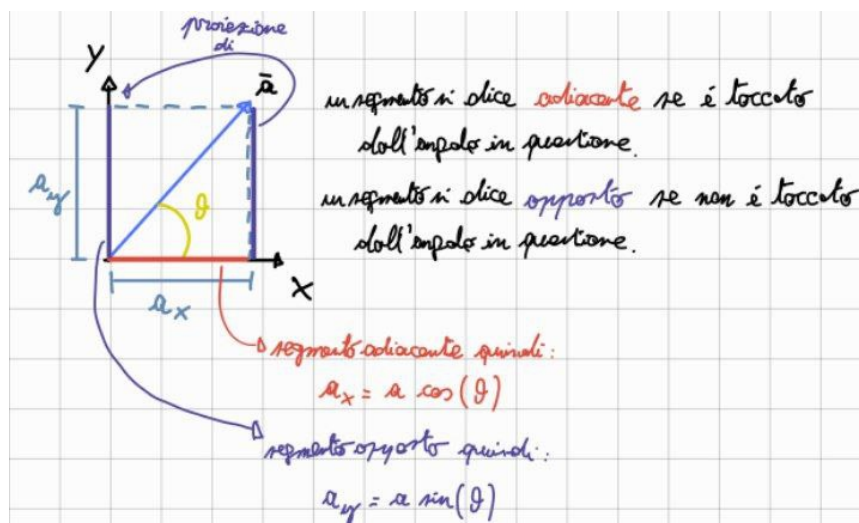 proiezione
di
Y
ā
a_y
θ
X
a_x
un segmento si dice adiacente se é toccato
dall'angolo in questione.
un segmento si dice opposto se non é toccato
dall'angolo in questione.
segmento adiacente quindi:
a_x = a cos(θ)
segmento opposto quindi:
a_y = a sin(θ)